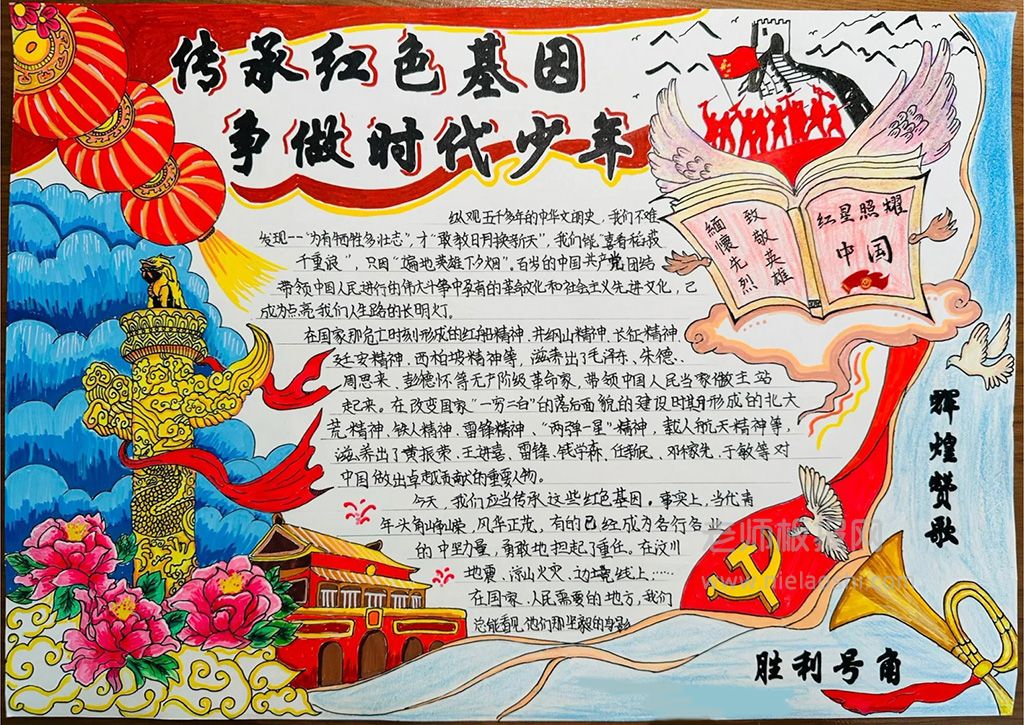 传承红色基因
争做时代少年
缅怀先烈
致敬英雄
红星照耀
中国
纵观五千多年的中华文明史，我们不难
发现--“为有牺牲多壮志”，才“敢教日月换新天”，我们能“喜看稻菽
千重浪”，只因“遍地英雄下夕烟”。百岁的中国共产党团结
带领中国人民进行的伟大斗争中孕育的革命文化和社会主义先进文化，已
成为点亮我们人生路的长明灯。
在国家那危亡时刻形成的红船精神、井冈山精神、长征精神、
延安精神、西柏坡精神等，滋养出了毛泽东、朱德、
周恩来、彭德怀等无产阶级革命家，带领中国人民当家做主站
起来。在改变国家“一穷二白”的落后面貌的建设时期形成的北大
荒精神、铁人精神、雷锋精神、“两弹一星”精神，载人航天精神等，
滋养出了黄振荣、王进喜、雷锋、钱学森、任新民、邓稼先、于敏等对
中国做出卓越贡献的重要人物。
今天，我们应当传承这些红色基因。事实上，当代青
年头角峥嵘，风华正茂，有的已经成为各行各业
的中坚力量，勇敢地担起了重任。在汶川
地震、凉山火灾、边境线上……
在国家、人民需要的地方，我们
总能看见他们那坚毅的身影
辉煌赞歌
胜利号角
老师板报网